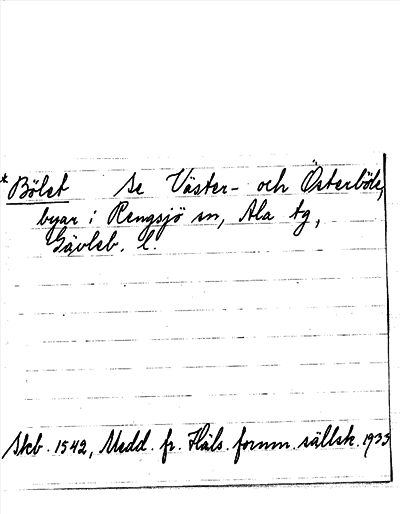 *Bölet Se Väster- och Österböle,
byar i Rengsjö sn, Ala tg,
Gävleb. l.
Skb. 1542, Medd. fr. Häls. fornm. sällsk. 1933